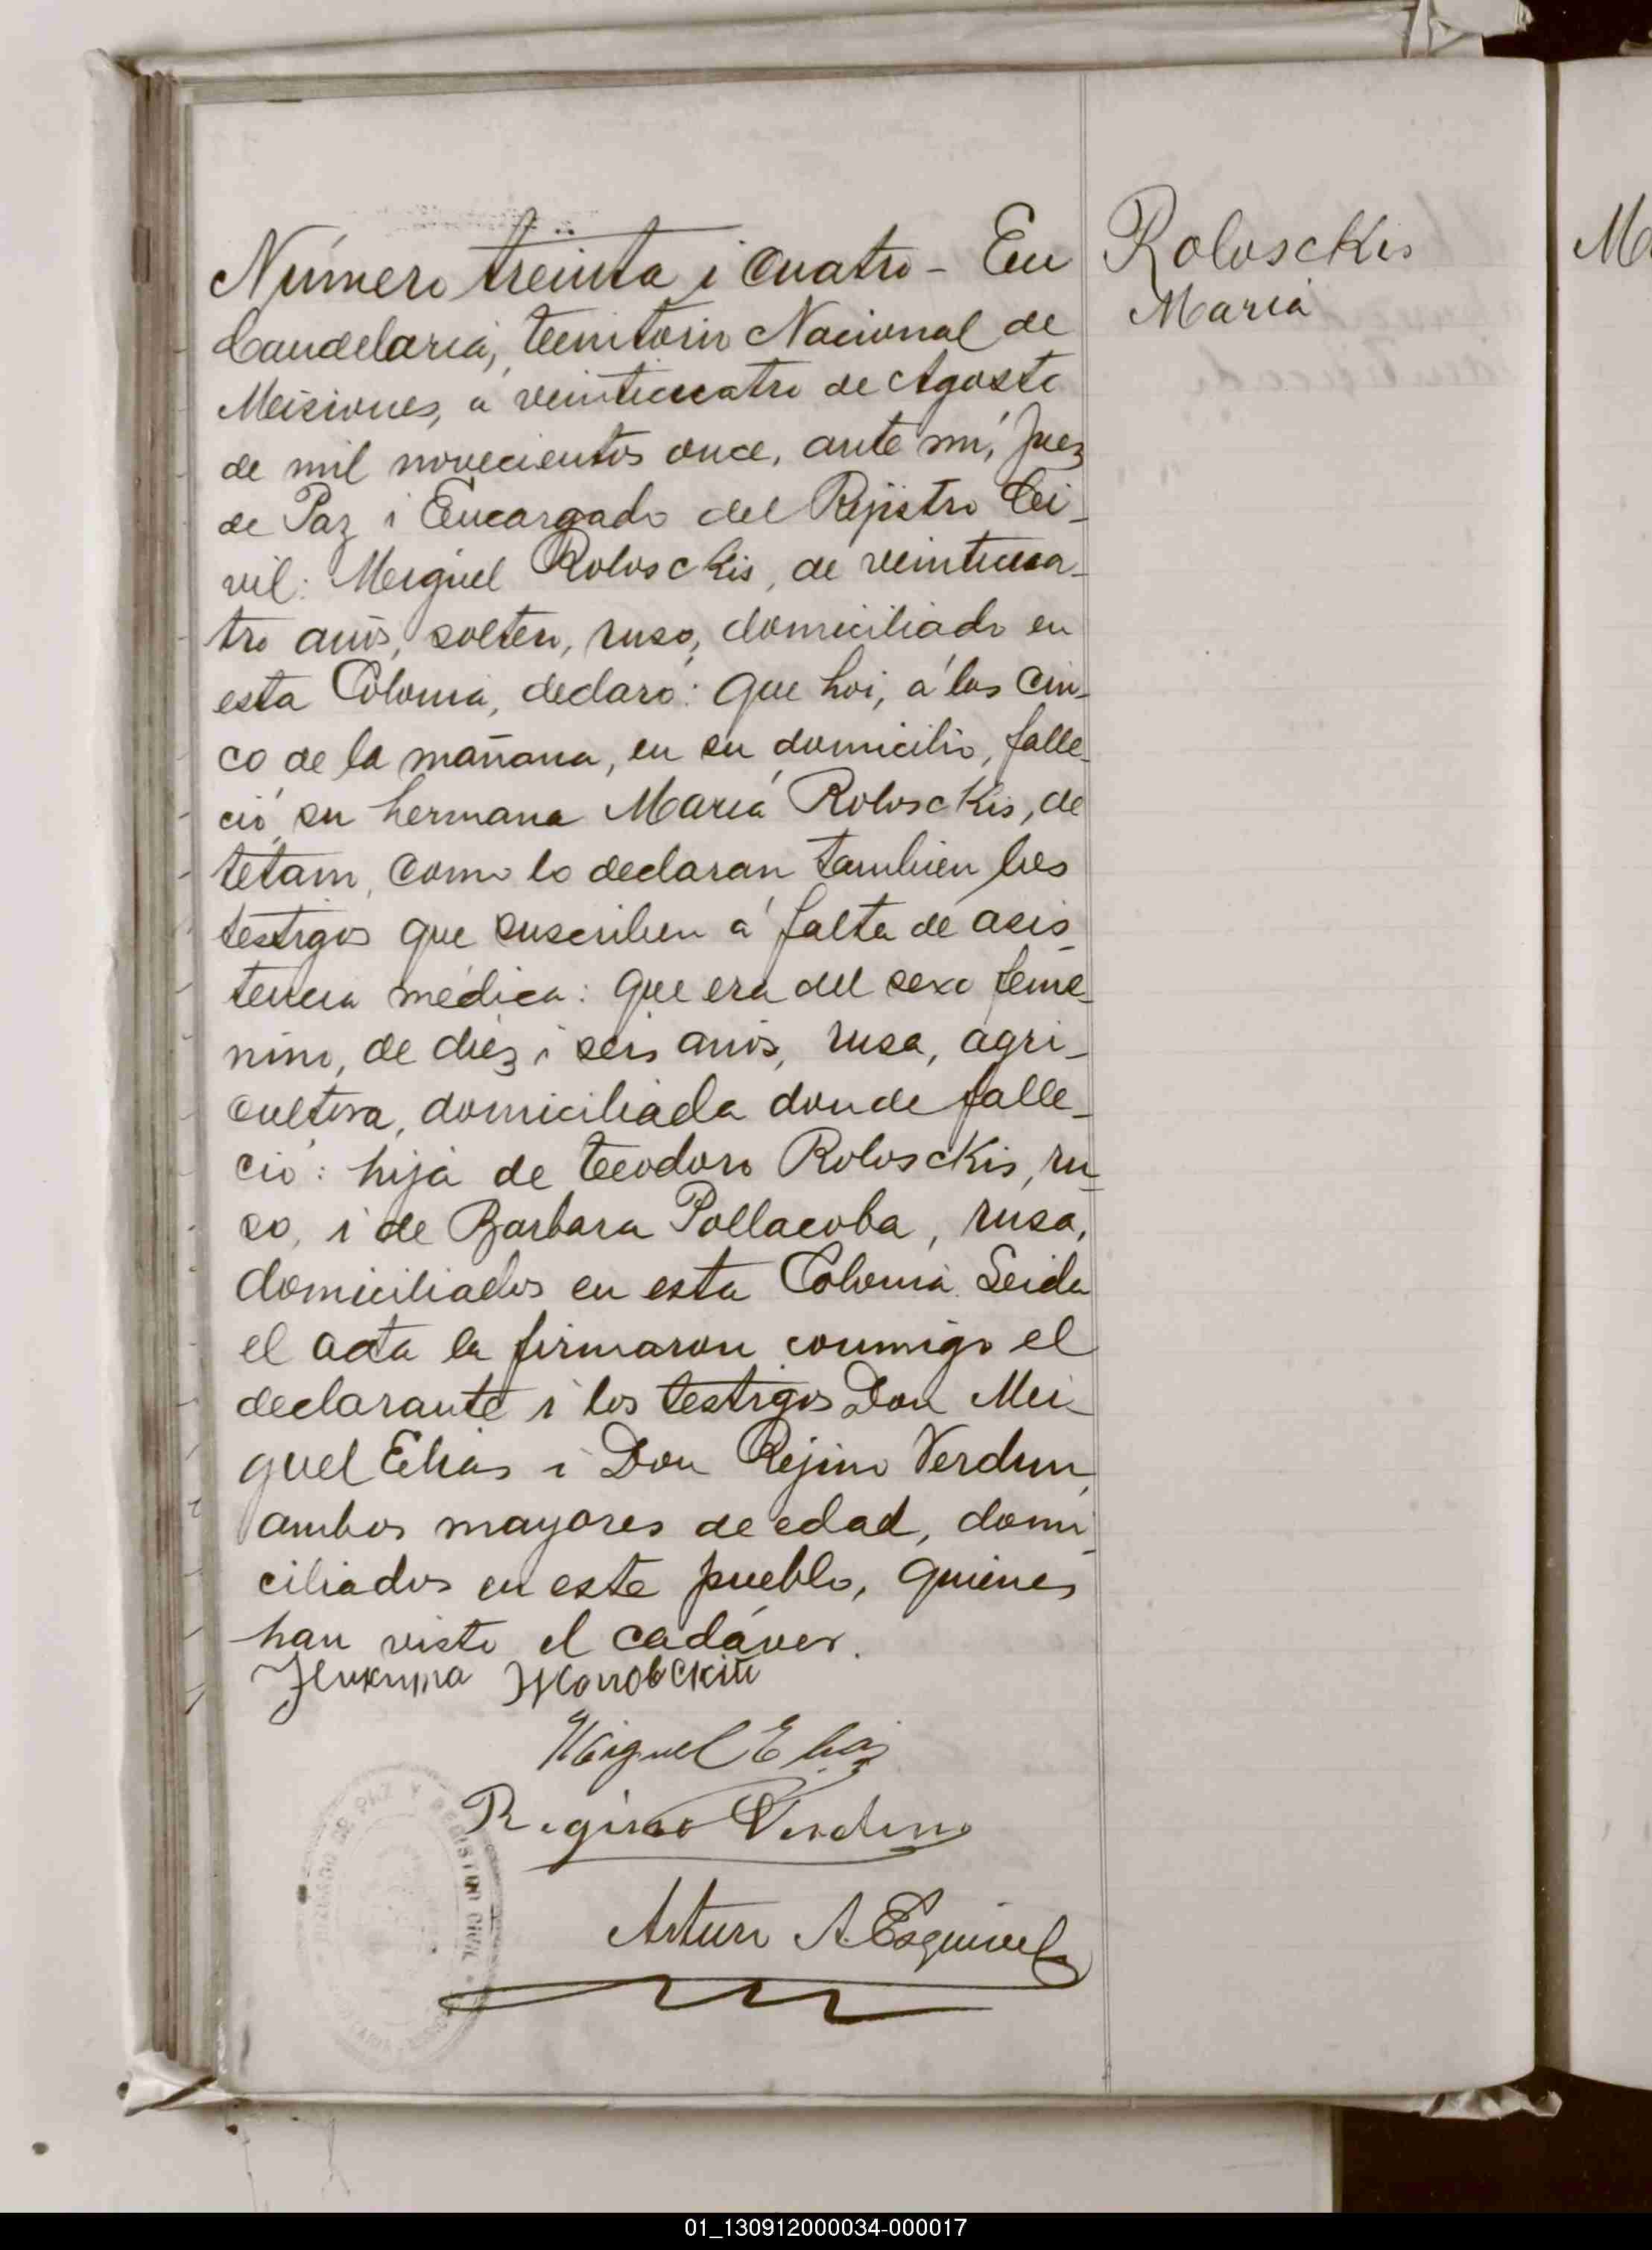 Rolosckis
María
Número treinta i cuatro - En
Candelaria, territorio Nacional de
Misiones, a veinticuatro de Agosto
de mil novecientos once, ante mi, Juez
de Paz i Encargado del Rejistro Ci-
vil: Miguel Rolosckis, de veinticua-
tro años, soltero, ruso, domiciliado en
esta Colonia, declaró: Que hoi, á las cin-
co de la mañana, en su domicilio, falle-
ció su hermana María Rolosckis, de
tétano, como lo declaran tambien los
testigos que suscriben á falta de asis-
tencia médica: Que era del sexo feme-
nino, de diez i seis años, rusa, agri-
cultora, domiciliada donde falle-
ció: hija de Teodoro Rolosckis, ru-
so, i de Barbara Pollacoba, rusa,
domiciliados en esta Colonia. Leida
el acta la firmaron conmigo el
declarante i los testigos Don Mi-
guel Elias i Don Rejino Verdun,
ambos mayores de edad, domi-
ciliados en este pueblo, quienes
han visto el cadáver.
Miguel Elias
Regino Verdun
Arturo A. Esquivel
JUZGADO DE PAZ Y REGISTRO CIVIL
M
01_130912000034-000017